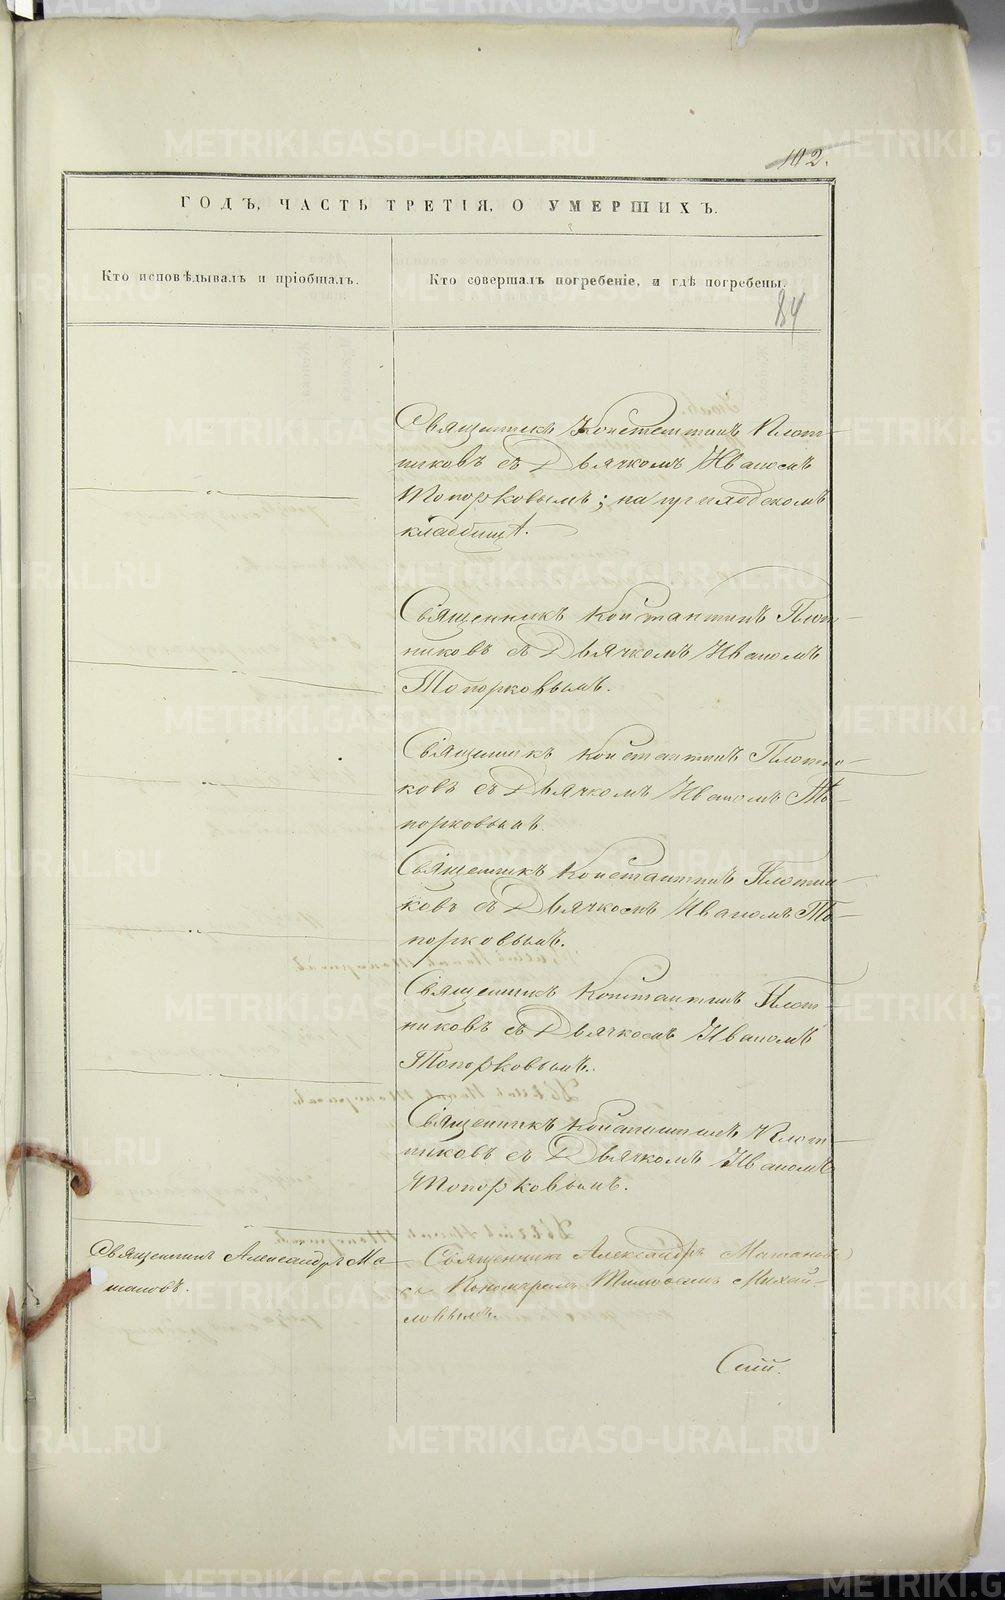 102.
ГОДЪ, ЧАСТЬ ТРЕТІЯ, О УМЕРШИХЪ.
Кто исповѣдывалъ и пріобщалъ.
Кто совершалъ погребеніе, и гдѣ погребены.
84
Священникъ Константинъ Плот-
никовъ съ Дьячкомъ Иваномъ
Топорковымъ; на
кладбищѣ.
Священникъ Константинъ Плот-
никовъ съ Дьячкомъ Иваномъ
Топорковымъ.
Священникъ Константинъ Плотни-
ковъ съ Дьячкомъ Иваномъ То-
порковымъ.
Священникъ Константинъ Плотни-
ковъ съ Дьячкомъ Иваномъ То-
порковымъ.
Священникъ Константинъ Плот-
никовъ съ Дьячкомъ Иваномъ
Топорковымъ.
Священникъ Константинъ Плот-
никовъ съ Дьячкомъ Иваномъ
Топорковымъ.
Священникъ Александръ Ма-
Священникъ Александръ
съ Михай-
ловымъ.
METRIKI.GASO-URAL.RU